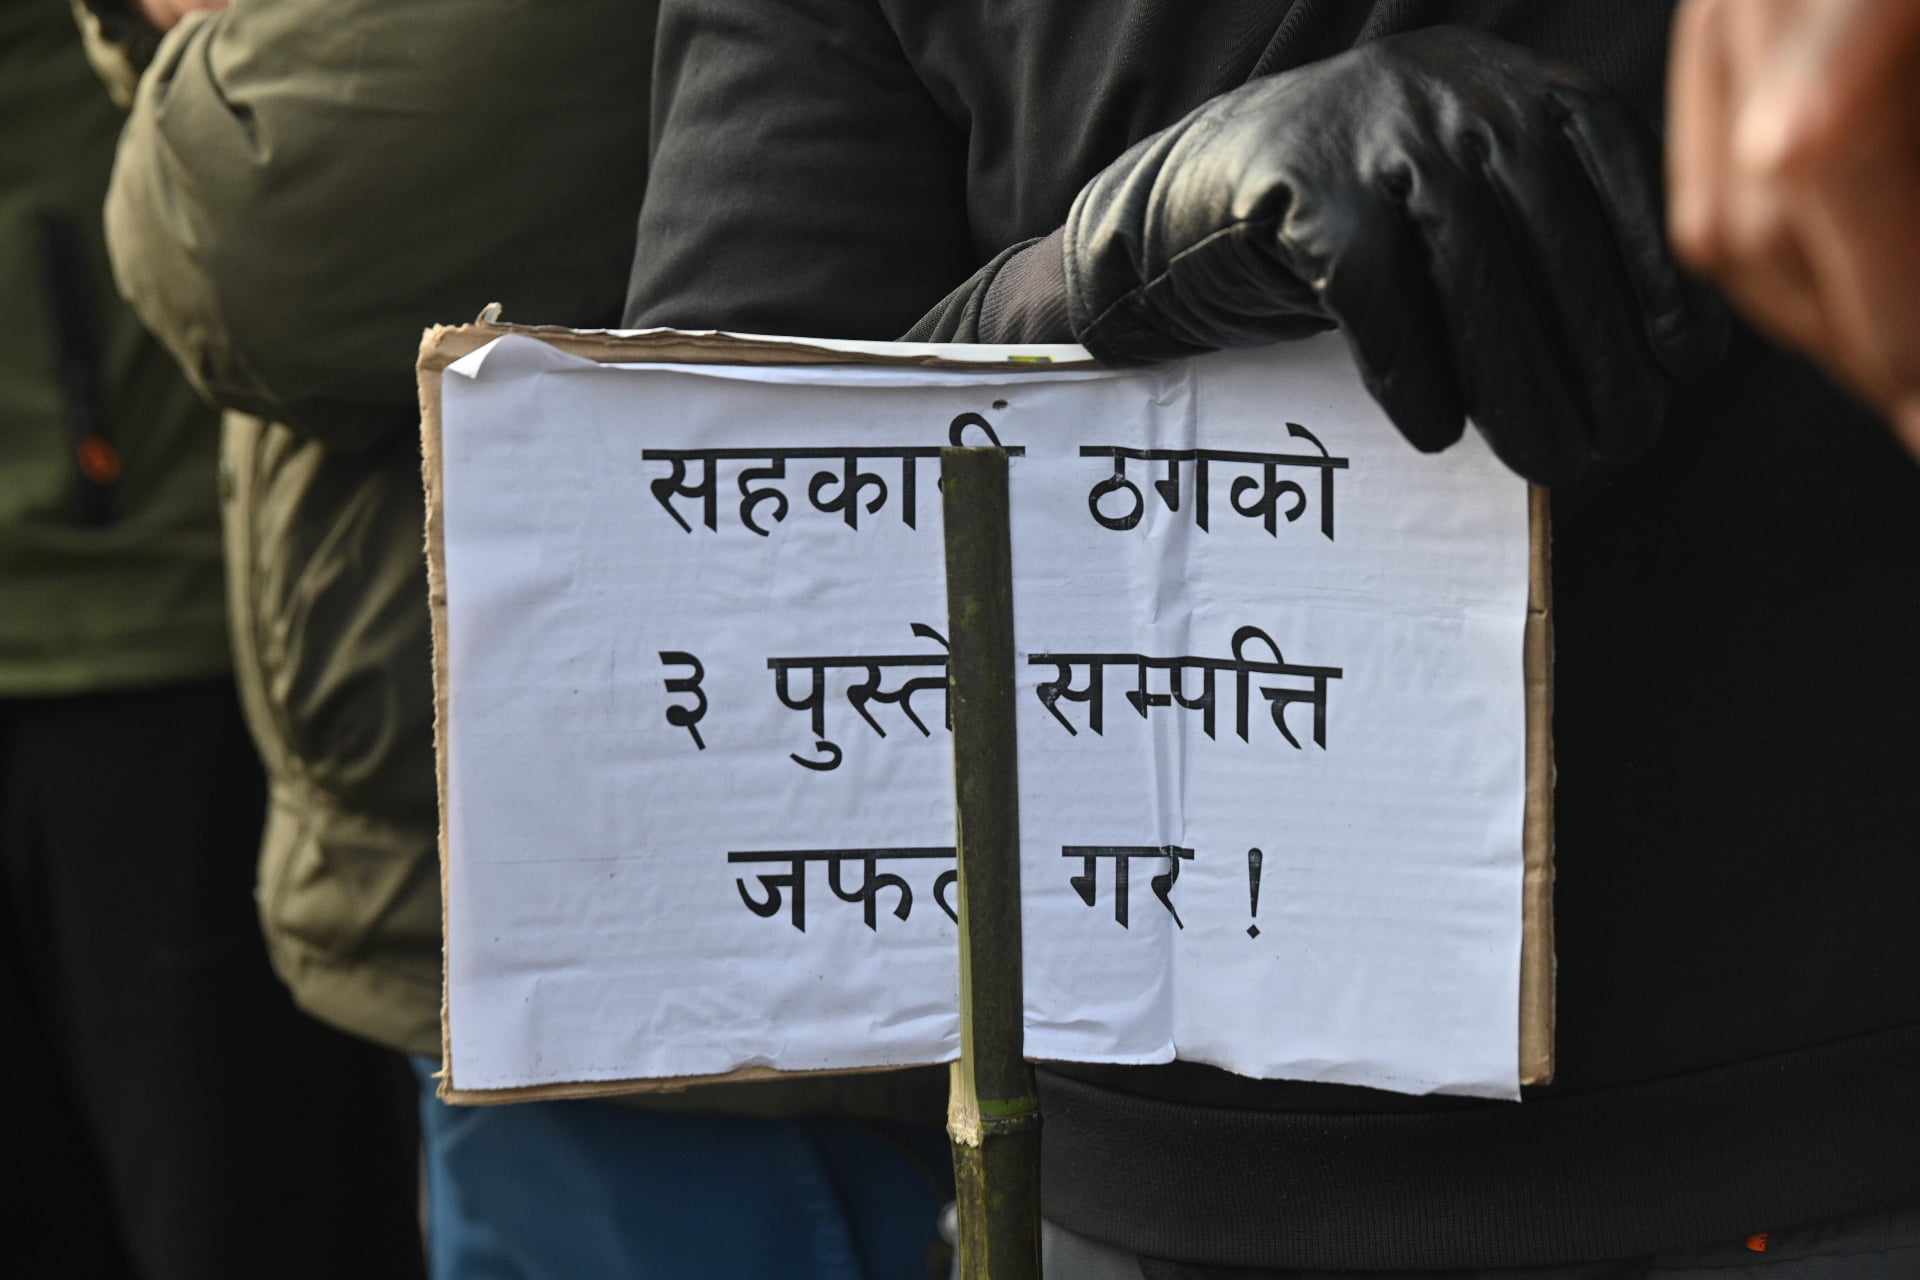 सहकारी ठगको
३ पुस्ते सम्पत्ति
जफत गर !